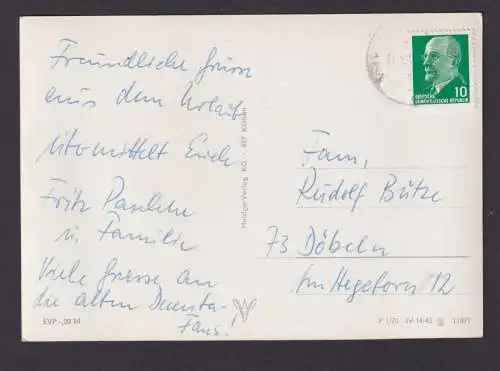 Freundliche Grüsse
aus dem Urlaub
übermittelt Euch
Fritz
u. Familie
Viele Grüsse an
die alten
Fans!
EVP -,20 M
Heldge-Verlag KG · 437 Köthen
10
DEUTSCHE
DEMOKRATISCHE REPUBLIK
Fam,
Rudolf Bütze
73 Döbeln
Am Hegeborn 12
P 1/70 IV-14-45